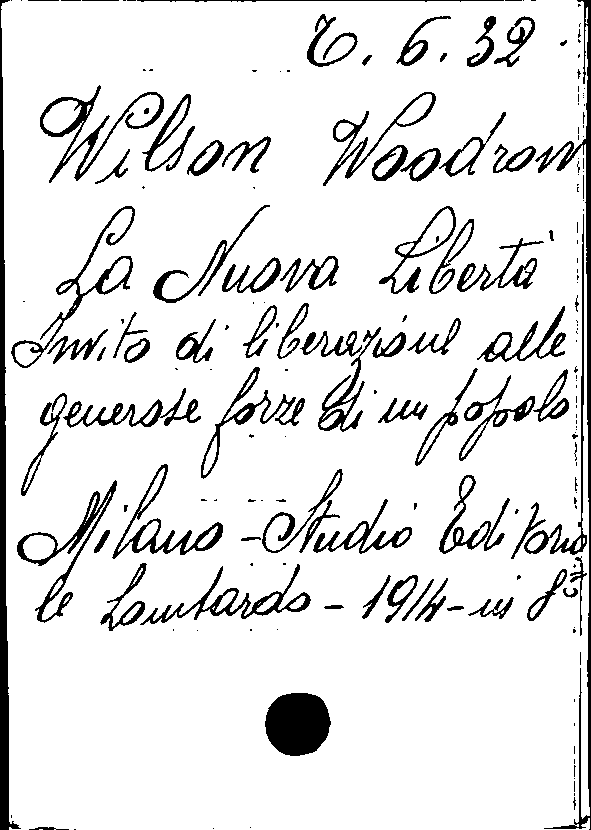 C. 6. 32
Wilson Woodrow
La Nuova Libertà
Invito di liberazione alle
generose forze di un popolo
Milano - Studio Editoria
le Lombardo - 1914 - in 8°